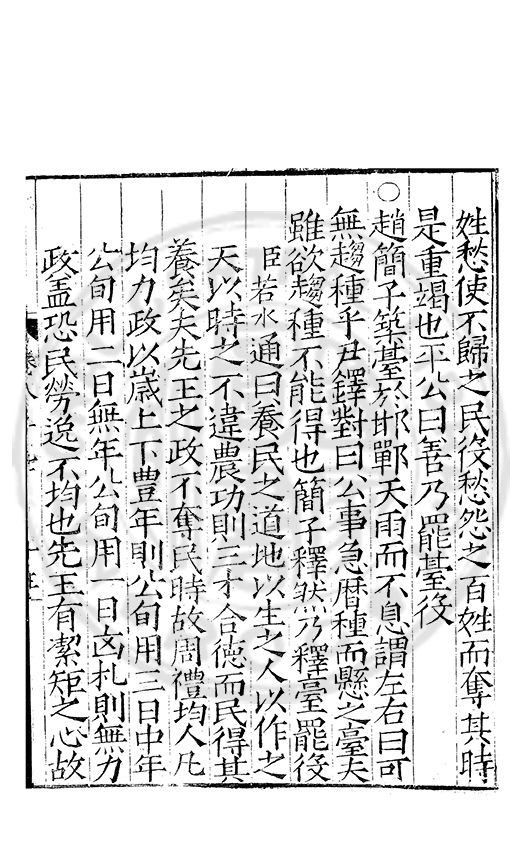 姓愁使不歸之民役愁怨之百姓而奪其時
是重竭也平公曰善乃罷臺役
○趙簡子築臺於邯鄲天雨而不息謂左右曰可
無趨種乎尹鐸對曰公事急厝種而懸之臺夫
雖欲趨種不能得也簡子釋然乃釋臺罷役
臣若水通曰養民之道地以生之人以作之
天以時之不違農功則三才合德而民得其
養矣夫先王之政不奪民時故周禮均人凡
均力政以歲上下豐年則公旬用三日中年
公旬用二日無年公旬用一日凶札則無力
政盖恐民勞逸不均也先王有潔矩之心故